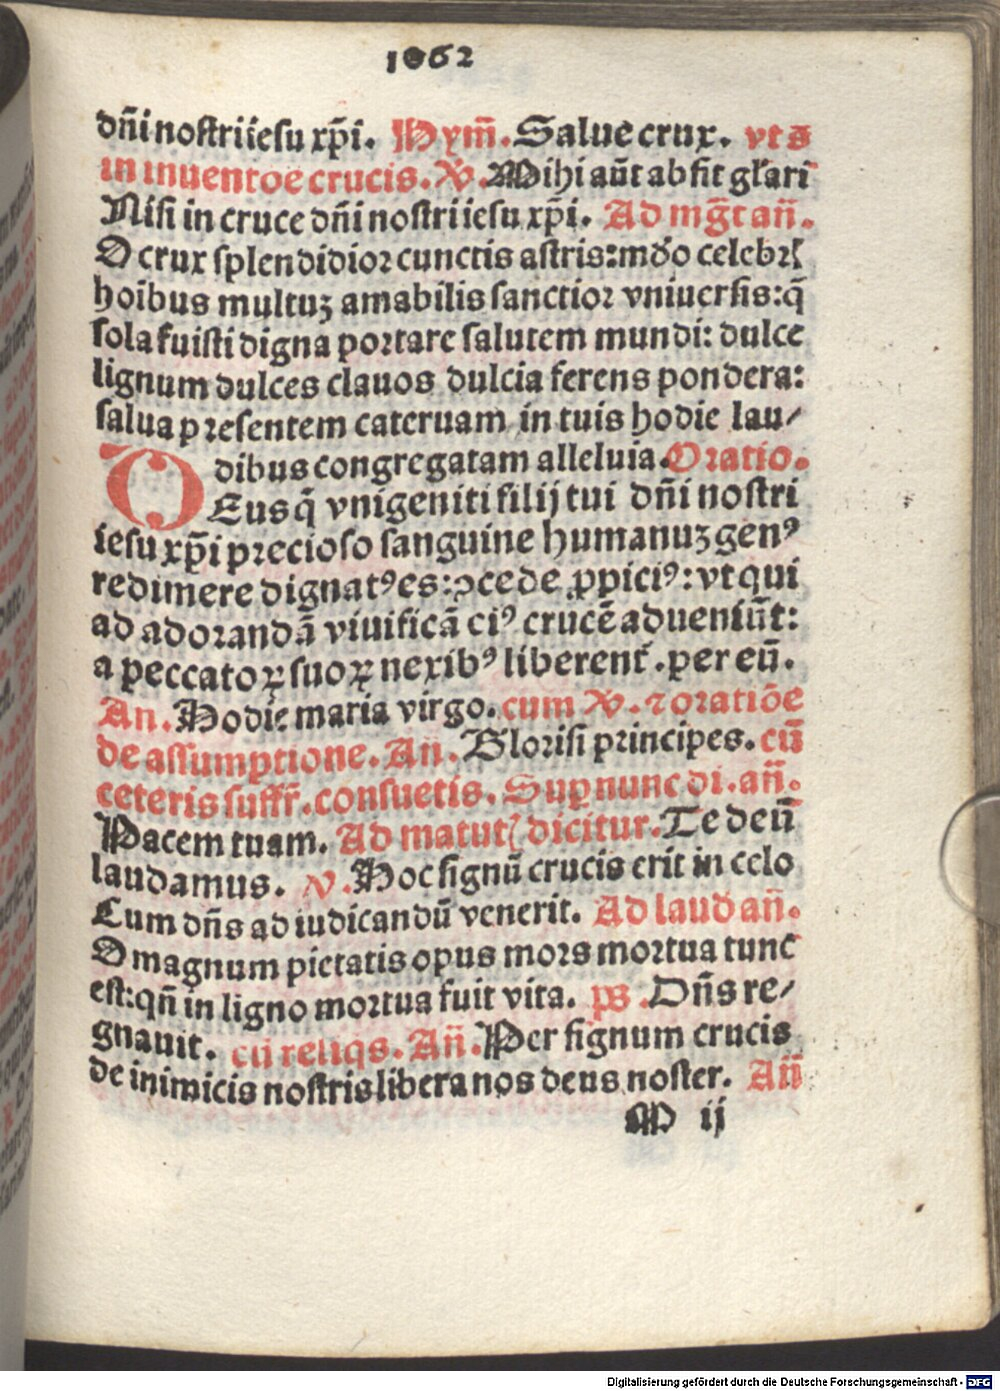 1062
dn̄i nostri iesu xp̄i. Hym̄. Salue crux. vt s̄
in inuentōe crucis. V. Mihi aūt absit gl̄ari
Nisi in cruce dn̄i nostri iesu xp̄i. Ad mḡt an̄.
O crux splendidior cunctis astris: mūdo celebrꝭ
hoībus multuꝫ amabilis sanctior vniuersis: q̄
sola fuisti digna portare salutem mundi: dulce
lignum dulces clauos dulcia ferens pondera:
salua presentem cateruam in tuis hodie lau/
dibus congregatam alleluia. Oratio.
DEus q̄ vnigeniti filij tui dn̄i nostri
iesu xp̄i precioso sanguine humanuꝫ genꝰ
redimere dignatꝰ es: ꝯcede ꝓpiciꝰ: vt qui
ad adorandā viuificā eiꝰ crucē adueniūt:
a peccatoꝝ suoꝝ nexibꝰ liberent̄. per eū.
An. Hodie maria virgo. cum V. ⁊ oratiōe
de assumptione. An̄. Glorisi principes. cū
ceteris suffr̄. consuetis. Suꝑ nunc di. an̄.
Pacem tuam. Ad matutꝭ dicitur. Te deū
laudamus. V. Hoc signū crucis erit in celo
Cum dn̄s ad iudicandū venerit. Ad laud an̄.
O magnum pietatis opus mors mortua tunc
est: qn̄ in ligno mortua fuit vita. ps. Dn̄s re/
gnauit. cū reliqs. An̄. Per signum crucis
de inimicis nostris libera nos deus noster. An̄
M ij
Digitalisierung gefördert durch die Deutsche Forschungsgemeinschaft - DFG